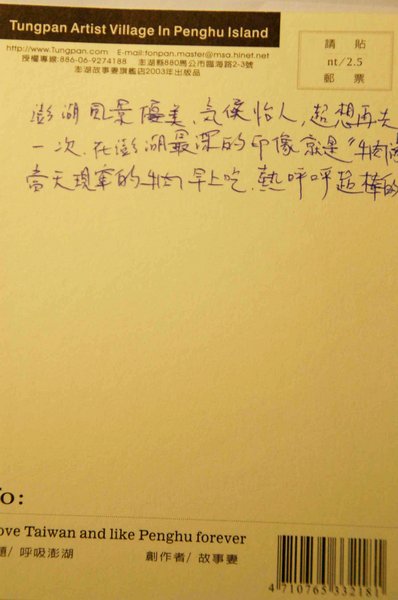 Tungpan Artist Village In Penghu Island
http://www.Tungpan.com E-mail:tonpan.master@msa.hinet.net
授權專線:886-06-9274188 澎湖縣880馬公市臨海路2-3號
澎湖故事妻旗艦店2003年出版品
請 貼
nt/2.5
郵 票
澎湖風景優美,氣候怡人,超想再去
一次.在澎湖最深的印像就是"牛肉
當天現宰的牛肉早上吃.熱呼呼超棒的
To:
ove Taiwan and like Penghu forever
題/ 呼吸澎湖 創作者/ 故事妻
4 710765 332181